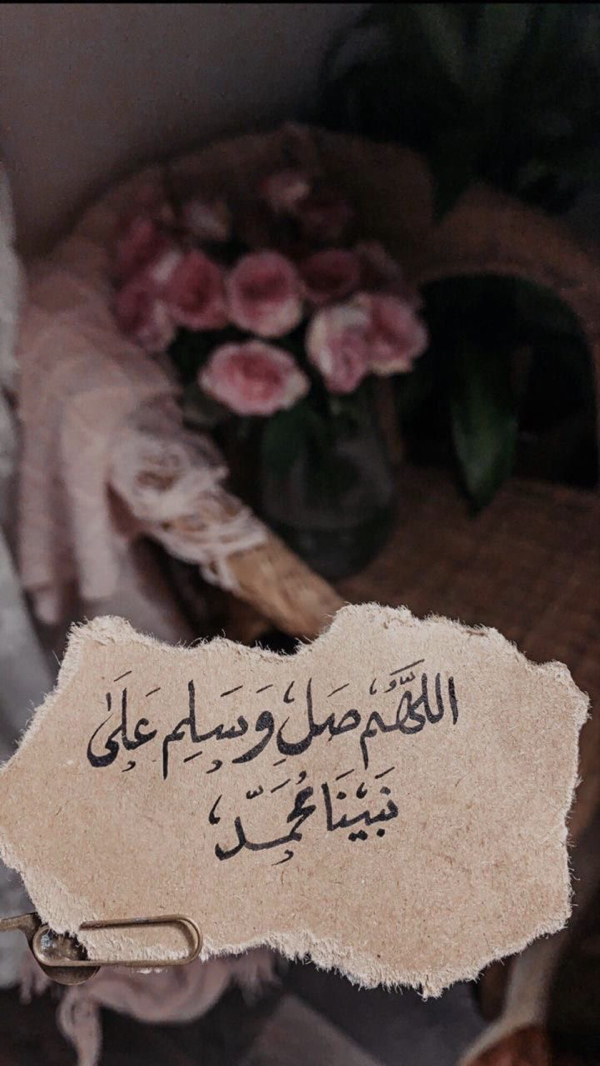 اللَّهُم صَلِ وَسَلِم عَلَىٰ
نَبِيْنَا مُحَمَّد